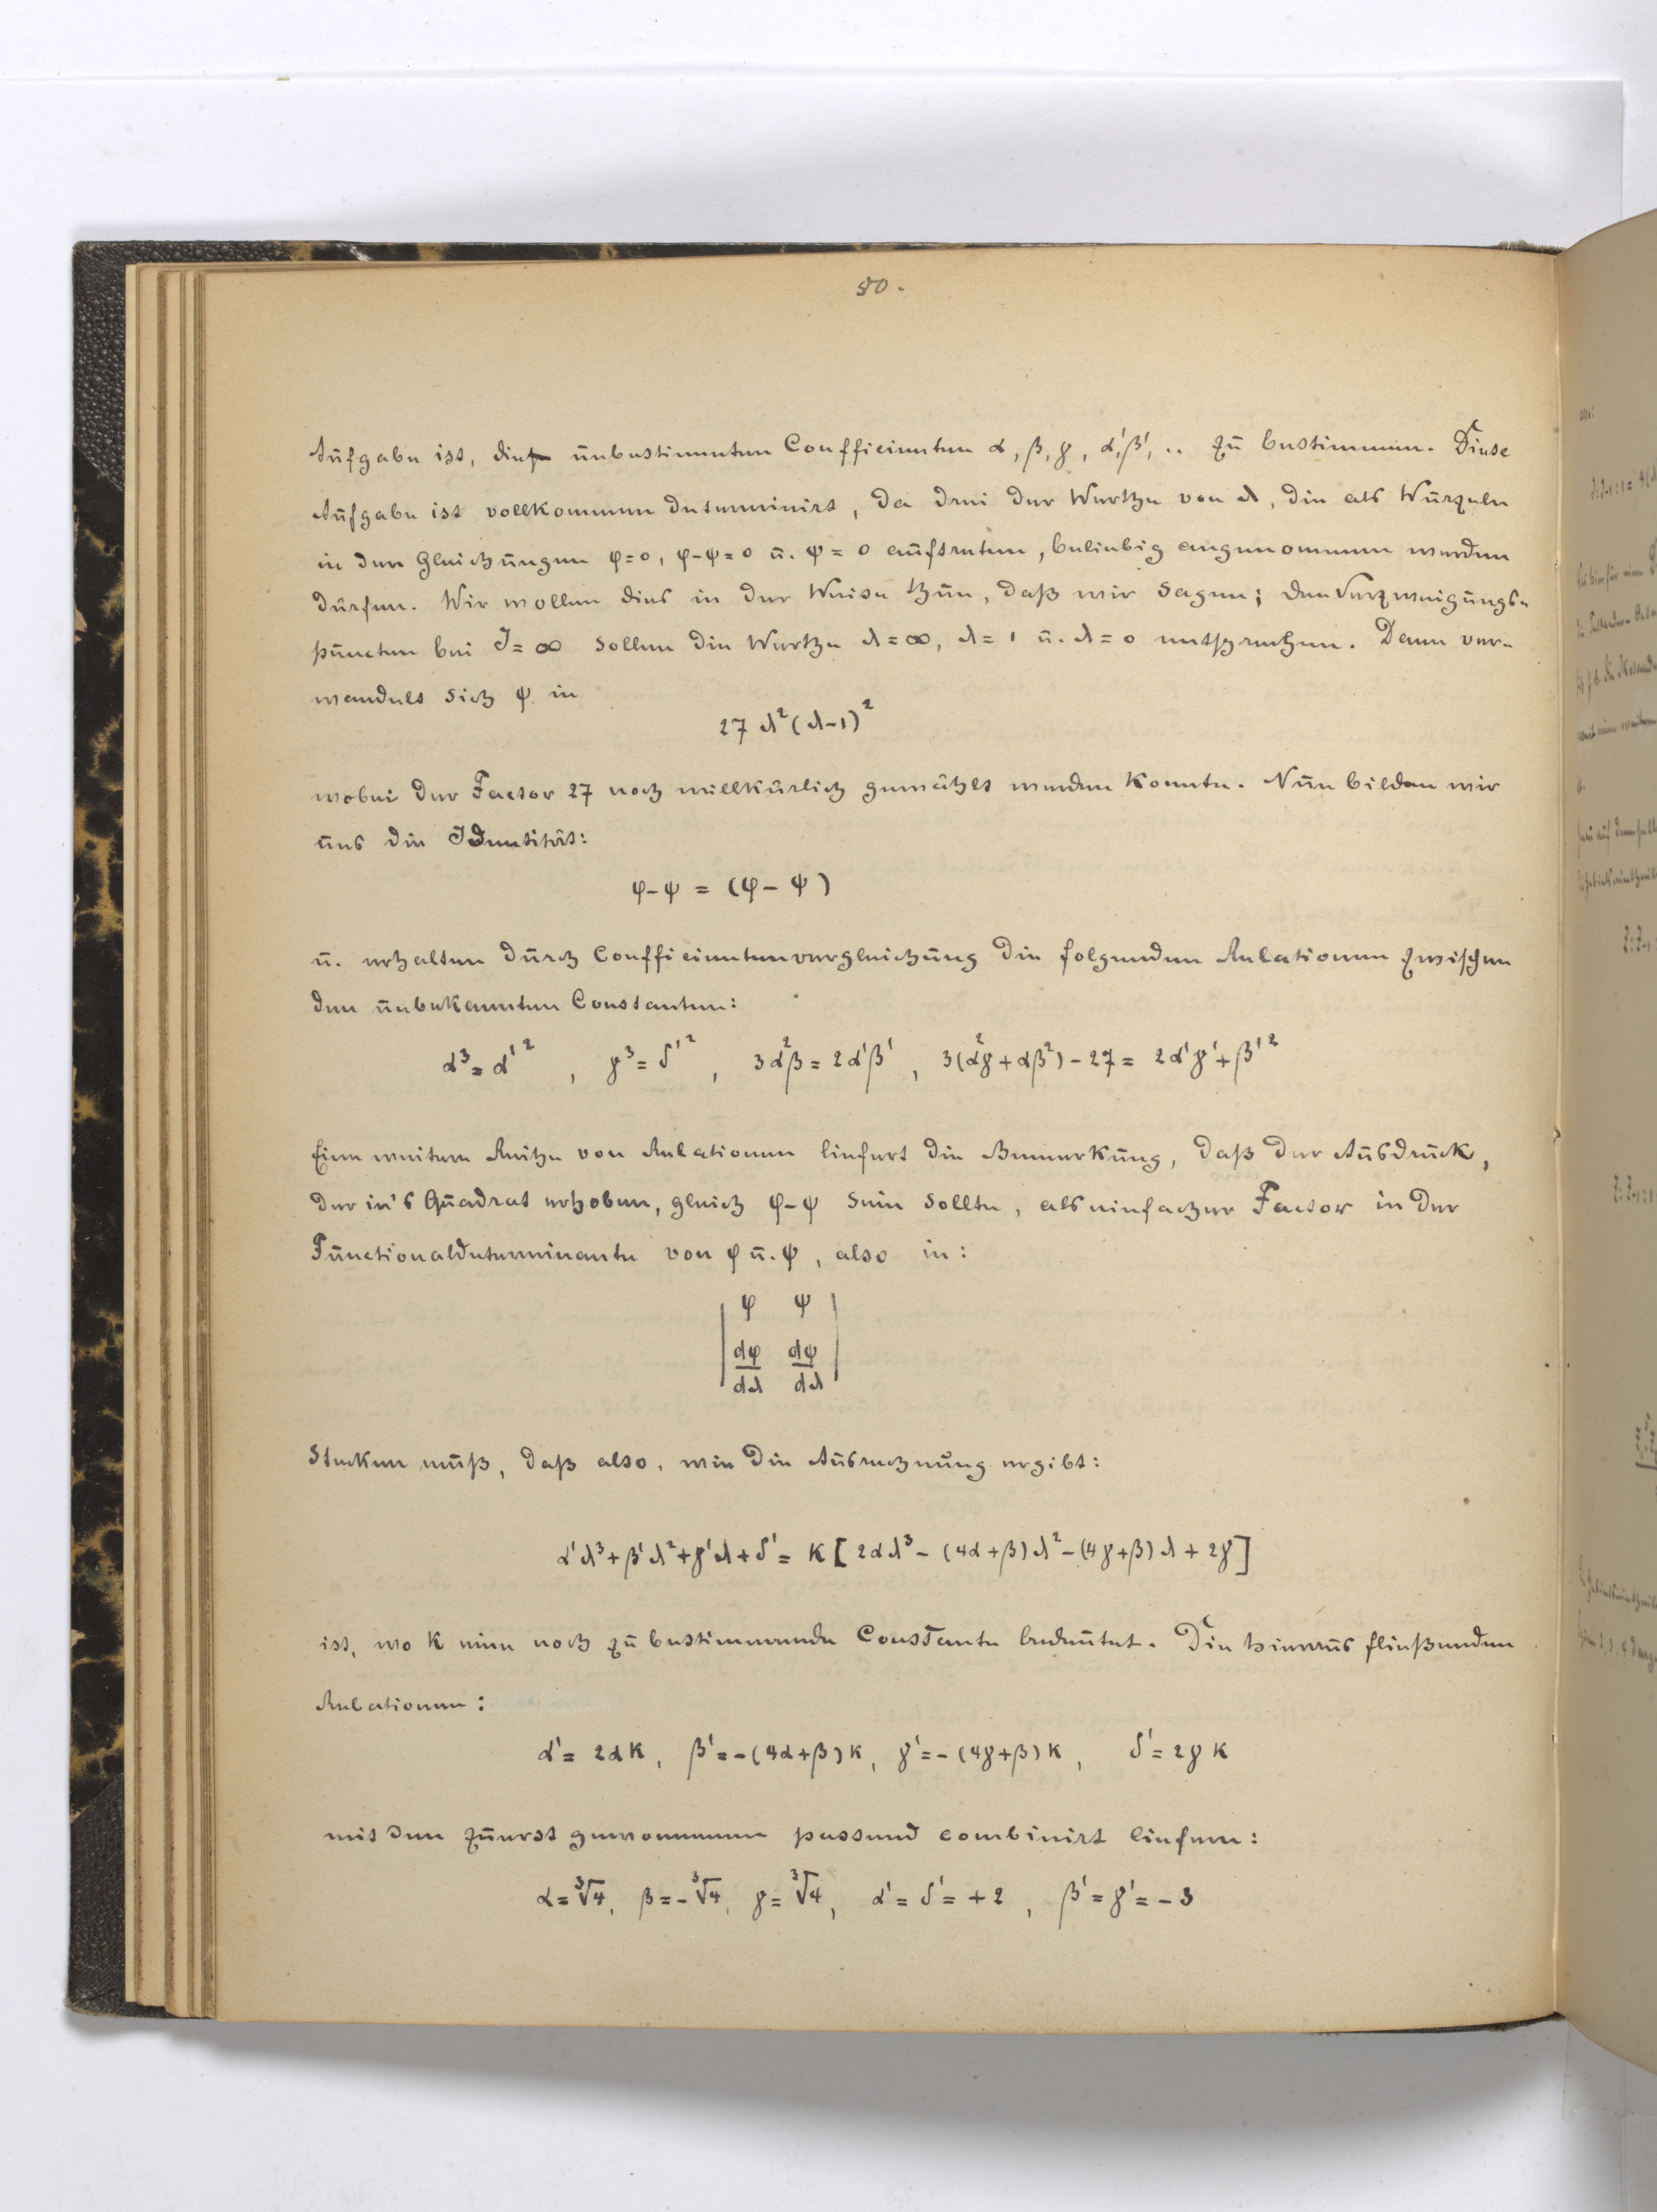 50.
Aufgabe ist, die unbestimmten Coefficienten α, β, γ, α', β', .. zu bestimmen. Diese
Aufgabe ist vollkommen determinirt, da drei der Werthe von λ, die als Wurzeln
in den Gleichungen φ=0, φ-ψ=0 u. ψ=0 auftreten, beliebig angenommen werden
dürfen. Wir wollen dies in der Weise thun, daß wir sagen; den Verzweigungs-
puncten bei J=∞ sollen die Werthe λ=∞, λ=1 u. λ=0 entsprechen. Dann ver-
wandelt sich ψ in
27 λ²(λ-1)²
wobei der Factor 27 noch willkürlich gewählt werden konnte. Nun bilden wir
uns die Identität:
φ-ψ = (φ-ψ)
u. erhalten durch Coefficientenvergleichung die folgenden Relationen zwischen
den unbekannten Constanten:
α³=α'², γ³=δ'², 3α²β=2α'β', 3(α²γ+αβ²)-27=2α'γ'+β'²
Eine weitere Reihe von Relationen liefert die Bemerkung, daß der Ausdruck,
der in's Quadrat erhoben, gleich φ-ψ sein sollte, als einfacher Factor in der
Functionaldeterminante von φ u. ψ, also in:
| φ ψ |
| dφ/dλ dψ/dλ |
stecken muß, daß also, wie die Ausrechnung ergibt:
α'λ³+β'λ²+γ'λ+δ' = K[2αλ³-(4α+β)λ²-(4γ+β)λ+2γ]
ist, wo K eine noch zu bestimmende Constante bedeutet. Die hieraus fließenden
Relationen:
α'=2αK, β'=-(4α+β)K, γ'=-(4γ+β)K, δ'=2γK
mit den zuerst gewonnenen passend combinirt liefern:
α=∛4, β=-∛4, γ=∛4, α'=δ'=+2, β'=γ'=-3